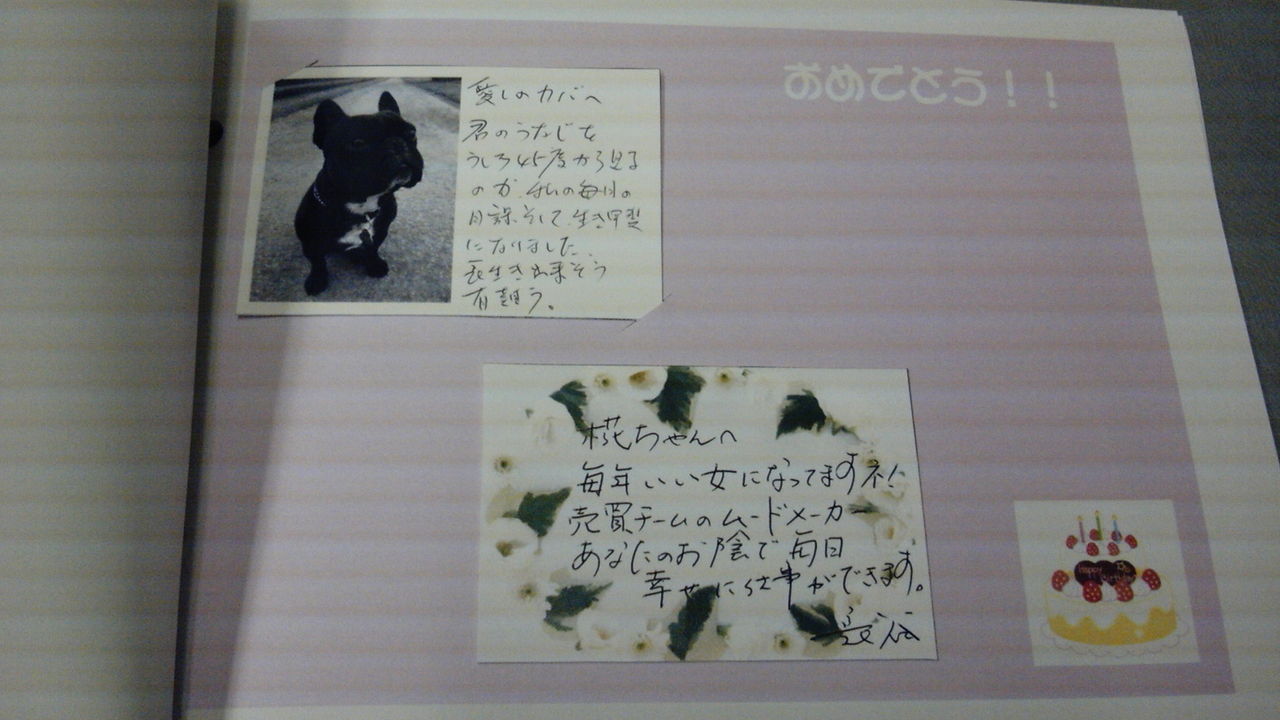 おめでとう！！
愛しのカバへ
君のうなじを
うしろ45度から見る
のが、私の毎日の
日課、そして、生き甲斐
になりました、
長生き出来そう
有難う。
椛ちゃんへ
毎年いい女になってますネ！
売買チームのムードメーカー
あなたのお陰で毎日
幸せに仕事ができます。
Happy Birthday